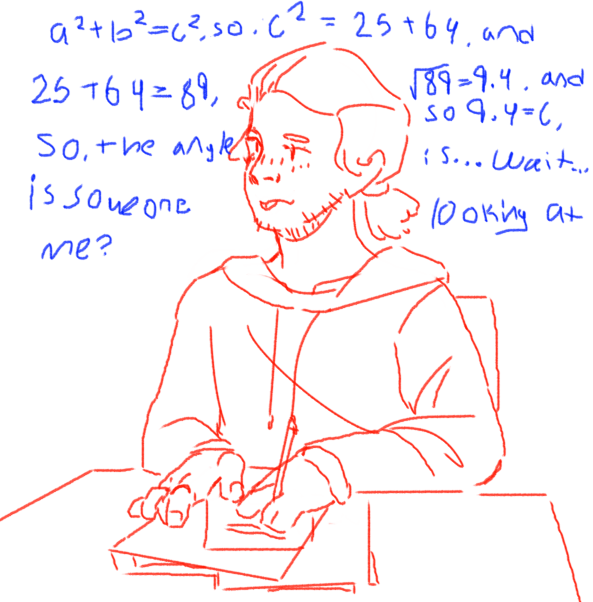 a²+b²=c², so. c² = 25+64, and
25+64=89, √89=9.4. and
so 9.4=c,
So, the angle is... wait...
is someone looking at
me?